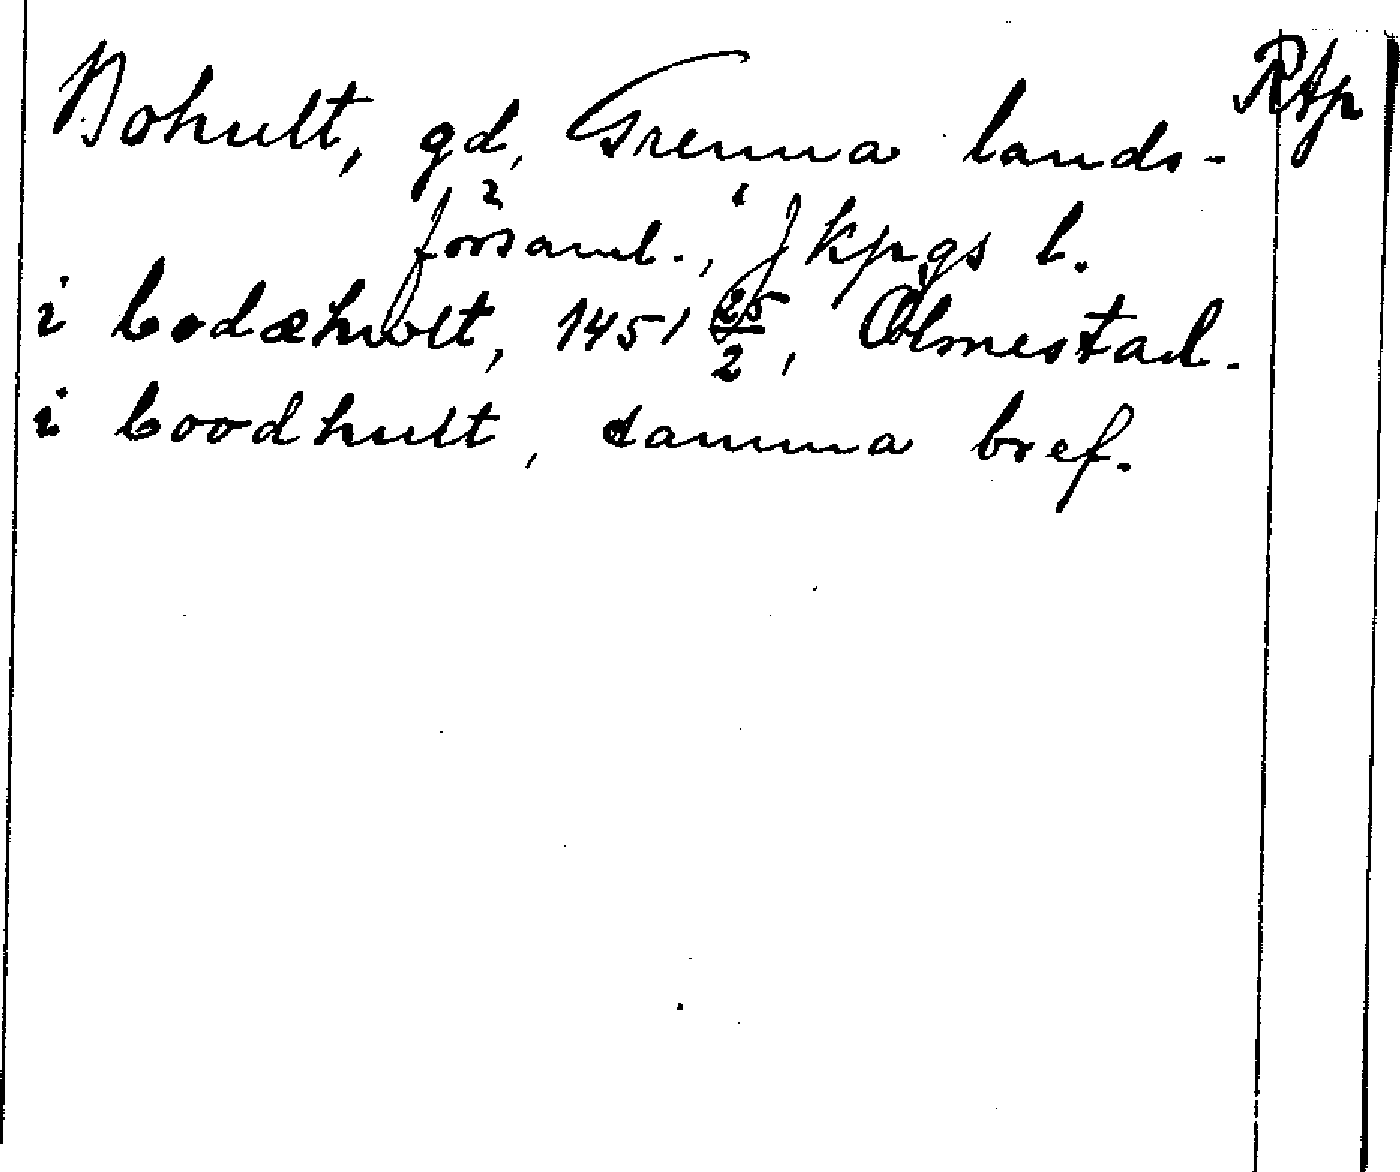 Bohult, gd, Grenna lands- Rtp
församl., Jkpgs l.
i bodæhvlt, 1451 25/2, Ølmestad.
i boodhult, samma bref.